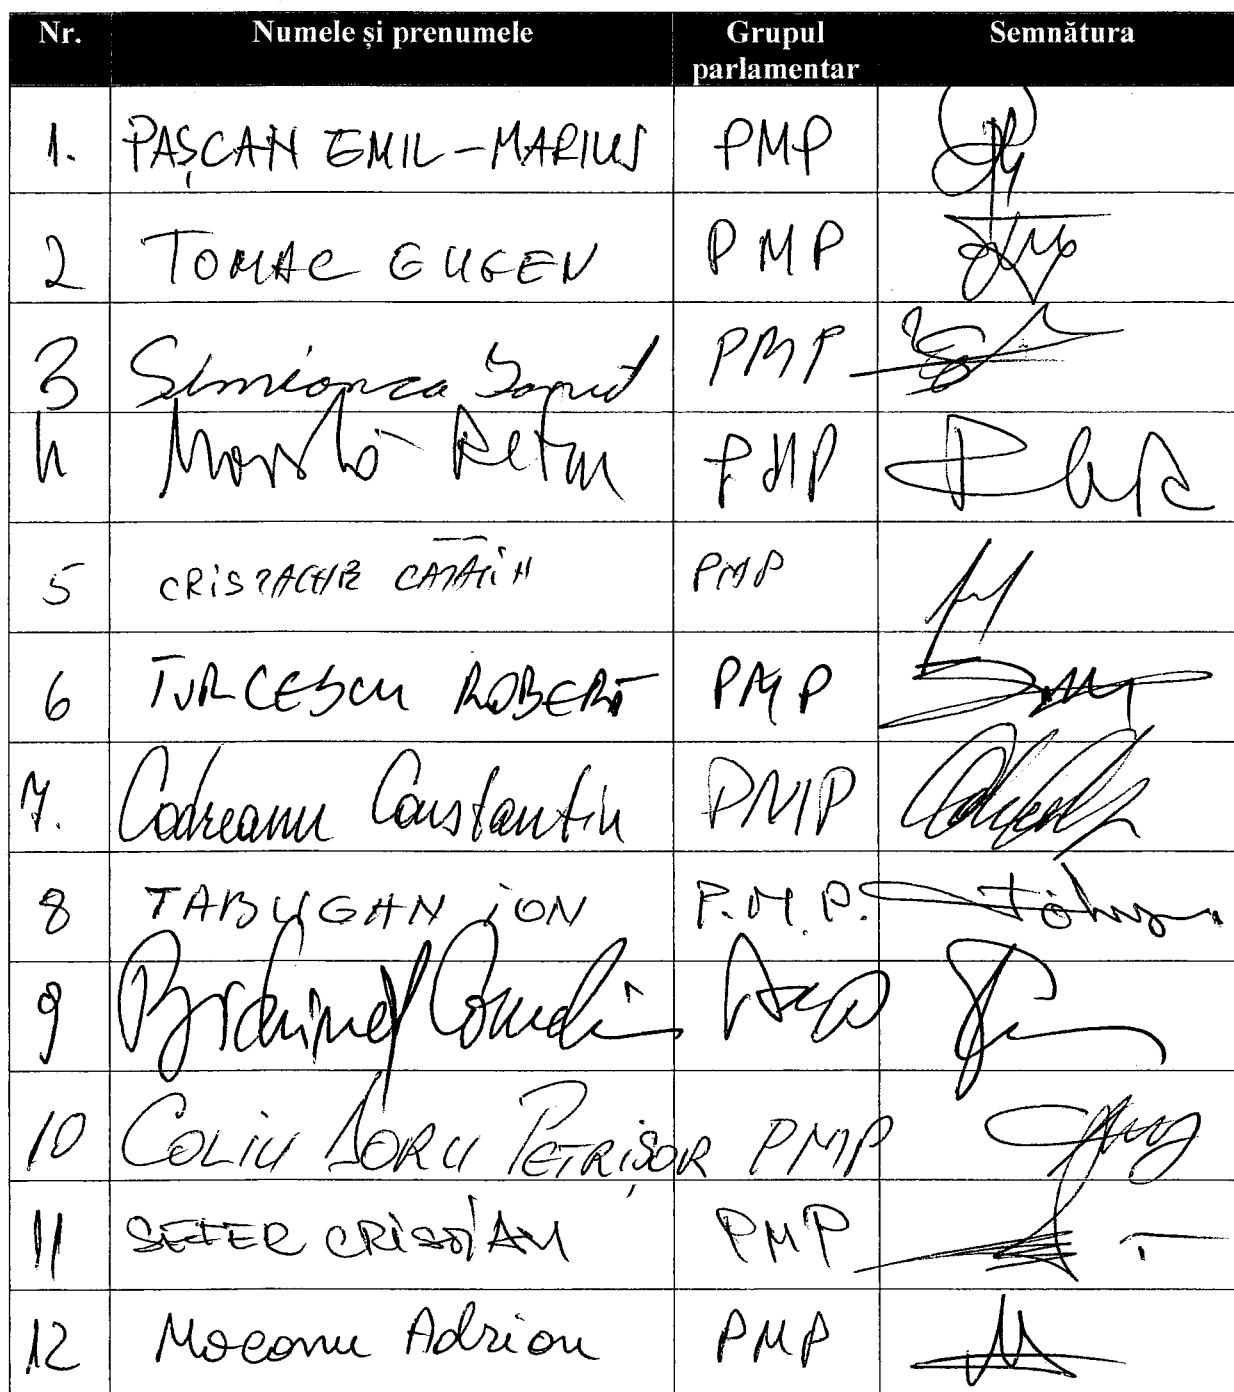 Nr. Numele și prenumele Grupul parlamentar Semnătura
1. PAȘCAN EMIL-MARIUS PMP
2 TOMAC EUGEN PMP
3 Simionca Ionuț PMP
4 Movilă Petru PMP
5 CRISTACHE CĂTĂLIN PMP
6 TURCESCU ROBERT PMP
7. Codreanu Constantin PMP
8 TABUGAN ION P.M.P.
9
10 COLIU DORU PETRIȘOR PMP
11 SEFER CRISTIAN PMP
12 Mocanu Adrian PMP